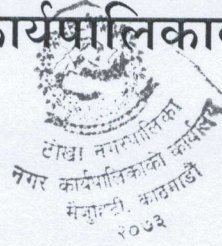 कार्यपालिकाको
टोखा नगरपालिका
नगर कार्यपालिकाको कार्यालय
काठमाडौं
२०७३